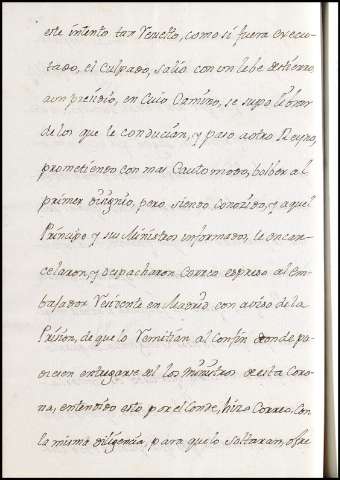 este intento tan resuelto, como si fuera execu-
tado, el Culpado, salio con un lebe destierro,
a un presidio, en Cuio Camino, se supo librar
de los que le conducian, y paso a otro Reyno,
prometiendo con mas Cauto modo, bolber al
primer disignio, pero siendo Conozido, y aquel
Principe y sus Ministros informados, le encar-
celaron, y despacharon Correo espreso al Em-
baxador Residente en Madrid con aviso de la
Prision, de que lo remitian al Confin donde pu-
diesen entregarse del los Ministros de esta Coro-
na, entendido esto por el Conde, hizo Correo, Con
la misma diligencia, para que lo soltaran, ofre